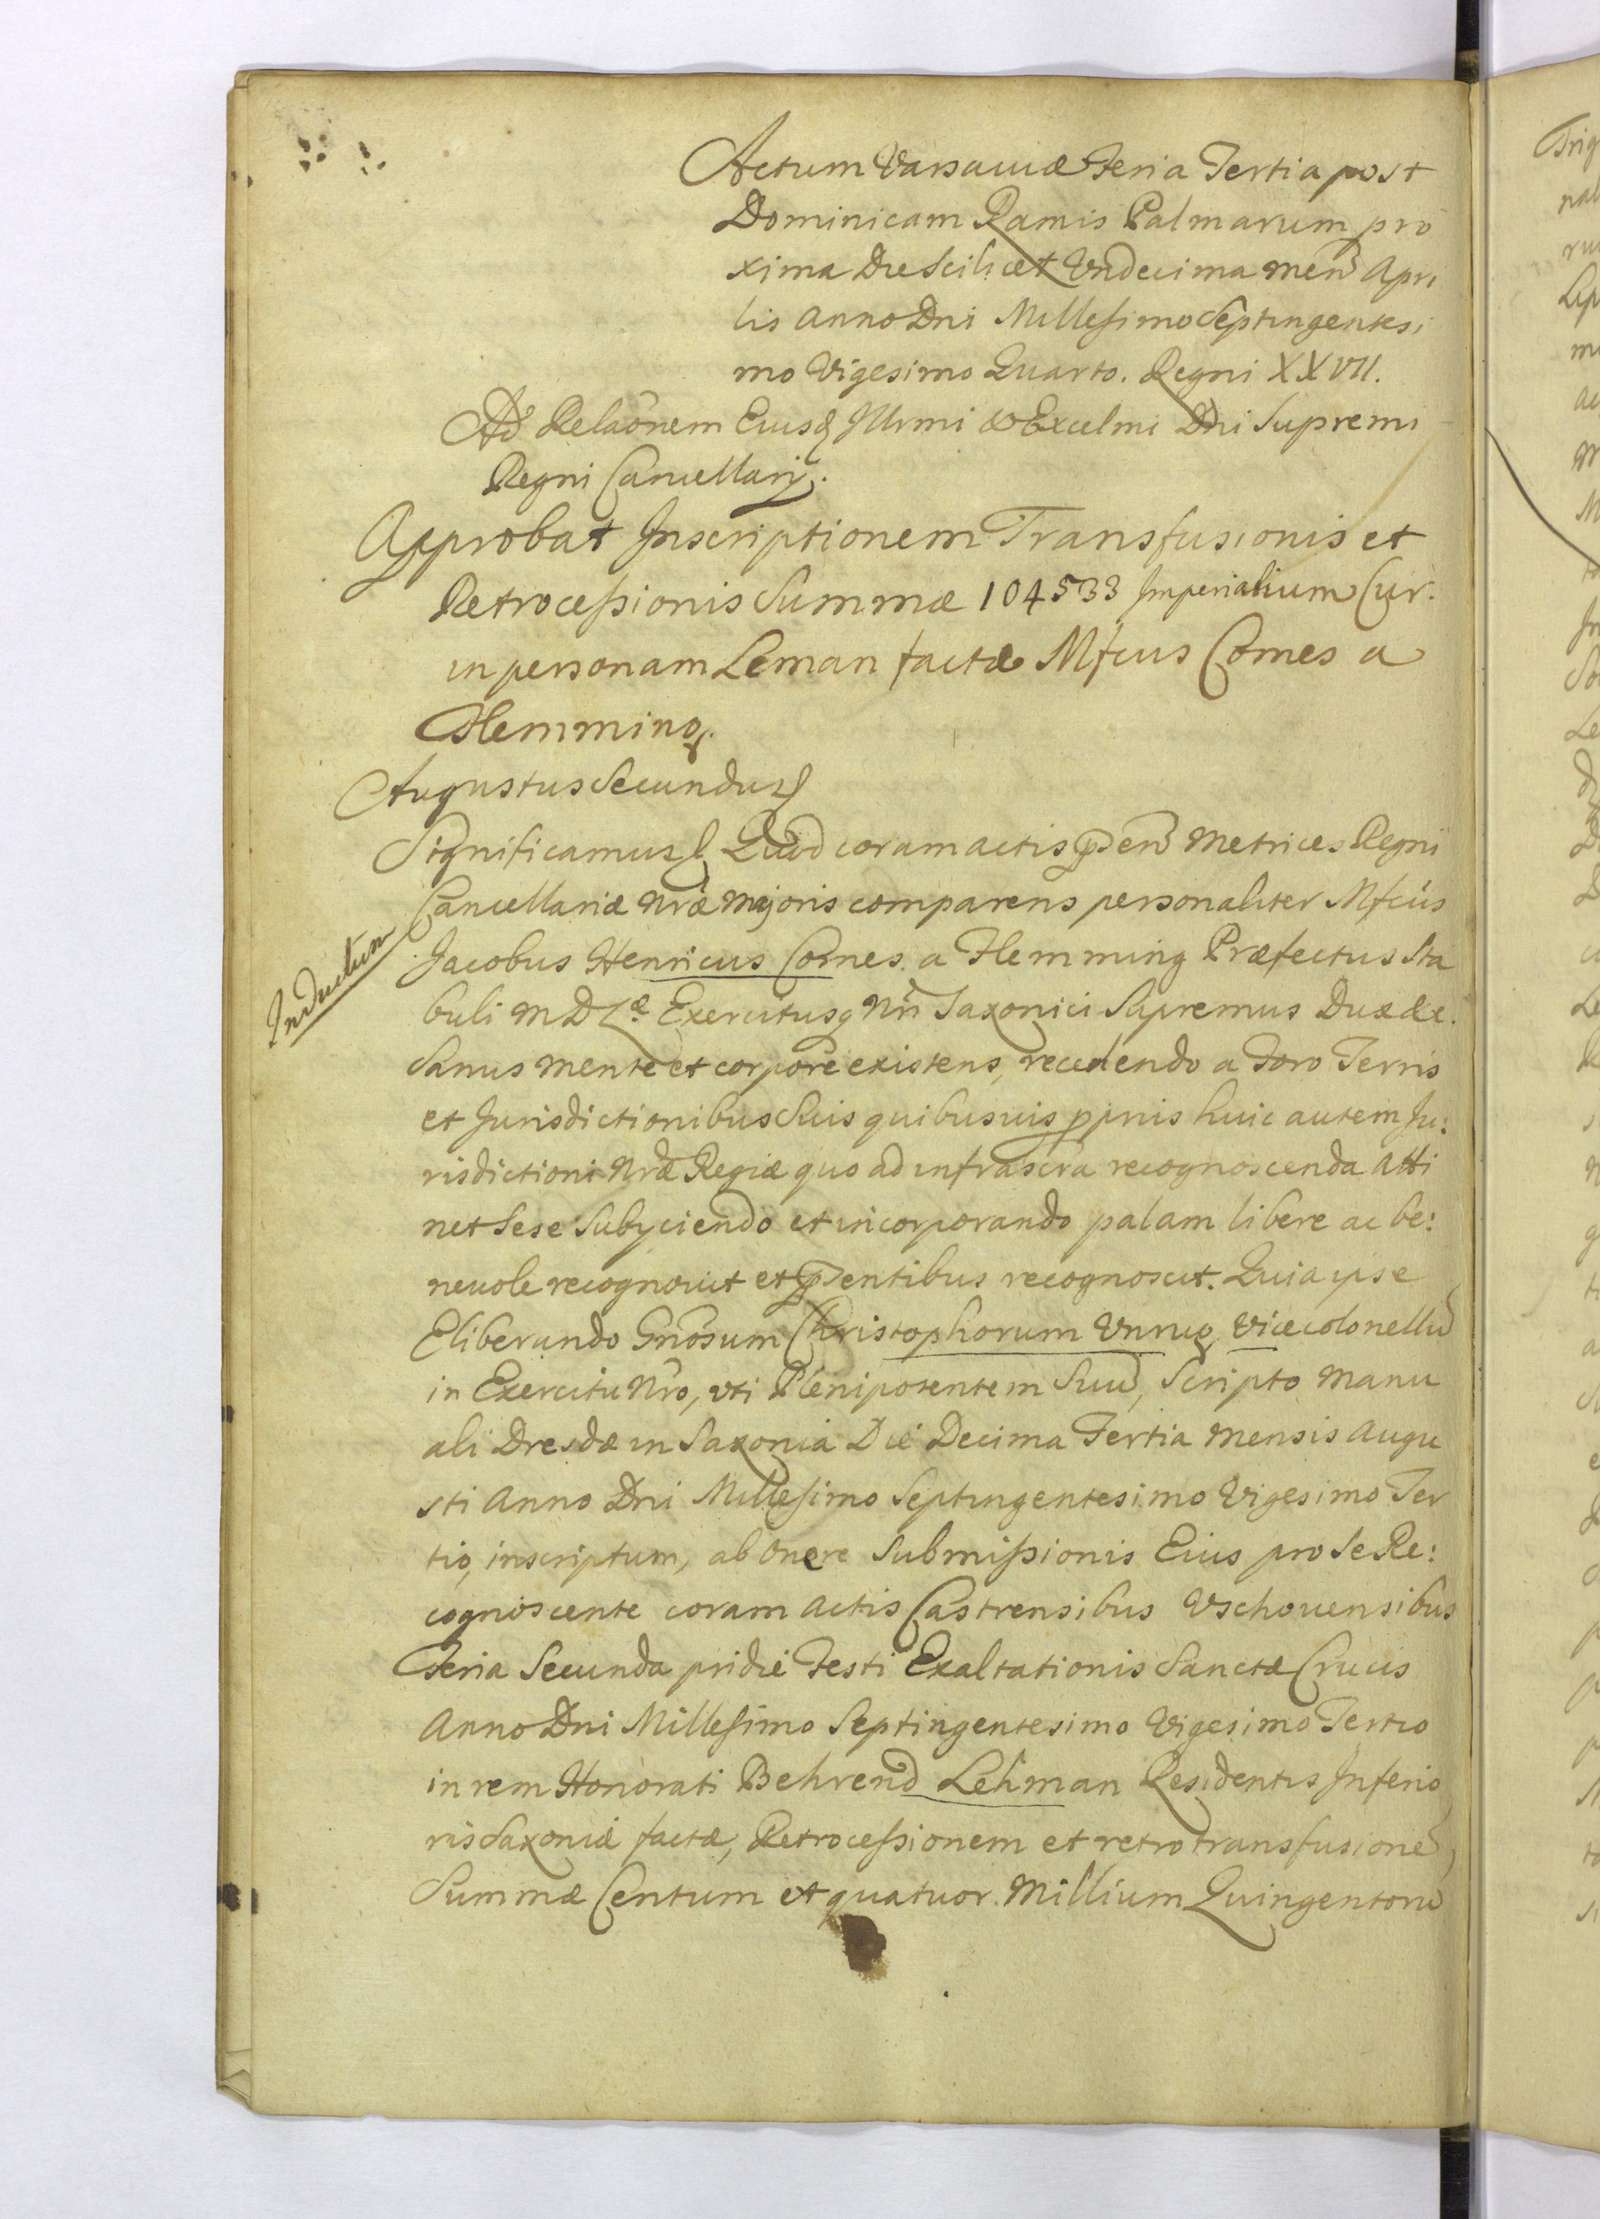 Actum Varsaviæ Feria Tertia post
Dominicam Ramis Palmarum pro
xima Die Scilicet Undecima Men̄ Apri
lis Anno Dni Millesimo Septingentesi
mo Vigesimo Quarto. Regni XXVII.
Ad Relaõnem Eiusd Illrmi & Excelmi Dni Supremi
Regni Cancellarij.
Approbat Inscriptionem Transfusionis et
Retrocessionis Summæ 104533 Imperialium Cur.
in personam Leman factæ Mfcus Comes a
Flemming.
Augustus Secundus
Significamus Quod coram actis Metrices Regni
Cancellariæ Nræ Majoris comparens personaliter Mfcus
Inductum
Jacobus Henricus Comes a Flemming Præfectus Sta
buli M D L.æ Exercitusq Nri Saxonici Supremus Dux &c.
Sanus mente et corpore existens, recedendo a Foro Terris
et Jurisdictionibus Suis quibusvis pprijs huic autem Ju:
risdictioni Nræ Regiæ quo ad infrascra recognoscenda atti
net Sese Subyciendo et incorporando palam libere ac be:
nevole recognovit et pñentibus recognoscit. Quia ipse
Eliberando Gnosum Christophorum Unrug, Vicecolonellū
in Exercitu Nro, uti Plenipotentem Suū, Scripto Manu
ali Dresdæ in Saxonia Die Decima Tertia Mensis Augu
sti Anno Dni Millesimo Septingentesimo Vigesimo Ter
tio, inscriptum, ab Onere Submissionis Eius pro Se Re:
cognoscente coram actis Castrensibus Vschovensibus
Feria Secunda pridie Festi Exaltationis Sanctæ Crucis
Anno Dni Millesimo Septingentesimo Vigesimo Tertio
in rem Honorati Behrend Lehman Residentis Inferio
ris Saxoniæ factæ, Retrocessionem et retrotransfusionē
Summæ Centum et quatuor Millium Quingentorū